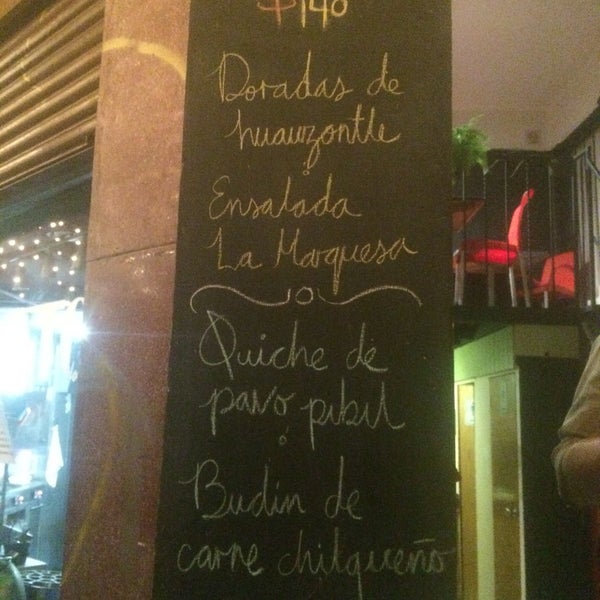 $140
Doradas de
huauzontle
ó
Ensalada
La Marquesa
Quiche de
pavo pibil
ó
Budin de
carne chilqueño